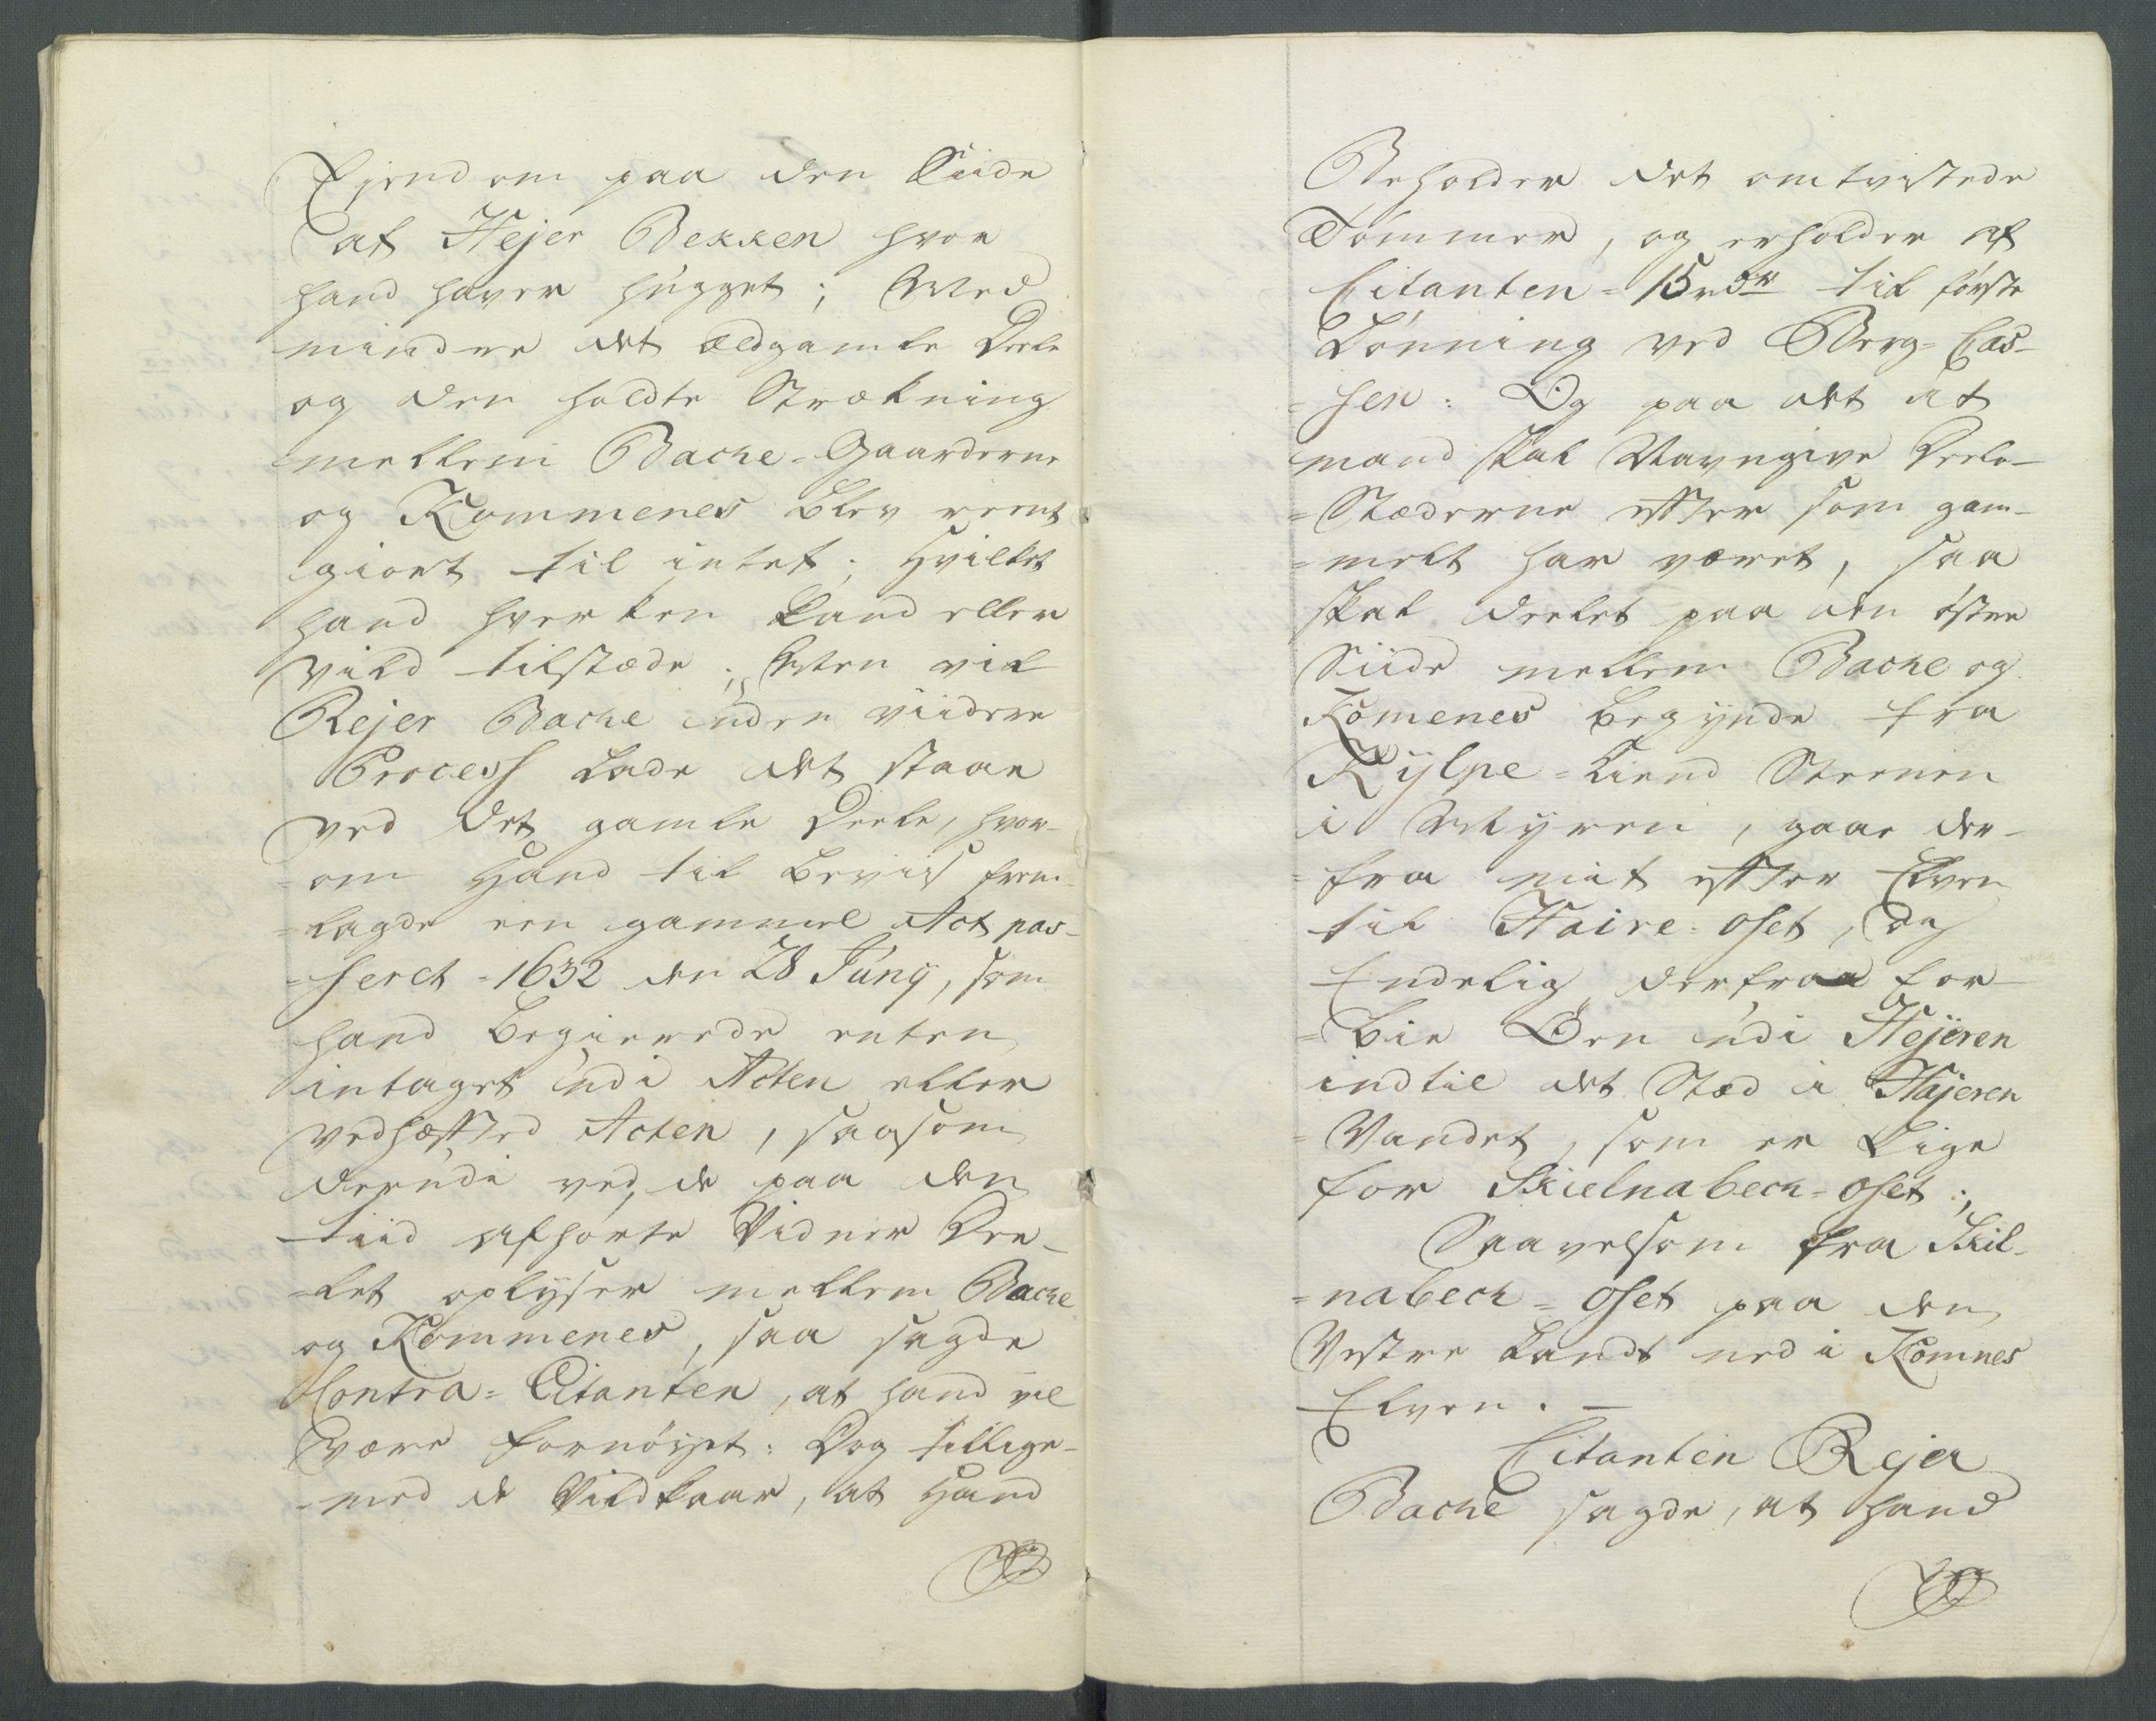 Ejendom paa den Siide
af Hejer Bekken hvor
hand haver hugget; Med
mindre det ældgamle Deele
og den holdte Strækning
mellem Bache-Gaarderne
og Kommenes blev reent
giort til intet; Hvilket
hand hverken kand eller
vild tilstæde; Men vil
Rejer Bache uden viidere
Process lade det staae
ved det gamle Deele, hvor-
=om Hand til beviis frem-
=lagde een gammel Act pas-
=seret =1632 den 28 Juny, som
hand begierede enten
intaget udi Acten eller
vedhæfted Acten, saasom
derudi ved de paa den
tiid afhørte Vidner Dee-
=let oplyser mellem Bache
og Kommenes, saa sagde
Contra=Citanten, at hand vil
være fornøyet: Dog tillige-
=med de Vildkaar, at Hand
Beholder det omtvistede
Tømmer, og erholder af
Citanten =15 rdr til første
Lønning ved Berg-Cas-
=sen: Og paa det at
mand skal Navngive Deele-
=Stæderne efter som gam-
=melt har været, saa
skal deelet paa den østre
Siide mellem Bache og
Komenes begynde fra
Kylpe=Liend Steenen
i Myren, gaar der-
=fra mit efter Elven
til Haire=oset, og
Endelig derfraa for-
=bie Øen udi Hejeren
indtil det Stæd i Hajeren
=Vandet, som er Lige
for Skielnabech=oset;
Saavelsom fra Skil-
=nabech=oset paa den
Vestre Landt ned i Komnes
Elven. -
Citanten Rejer
Bache sagde, at hand